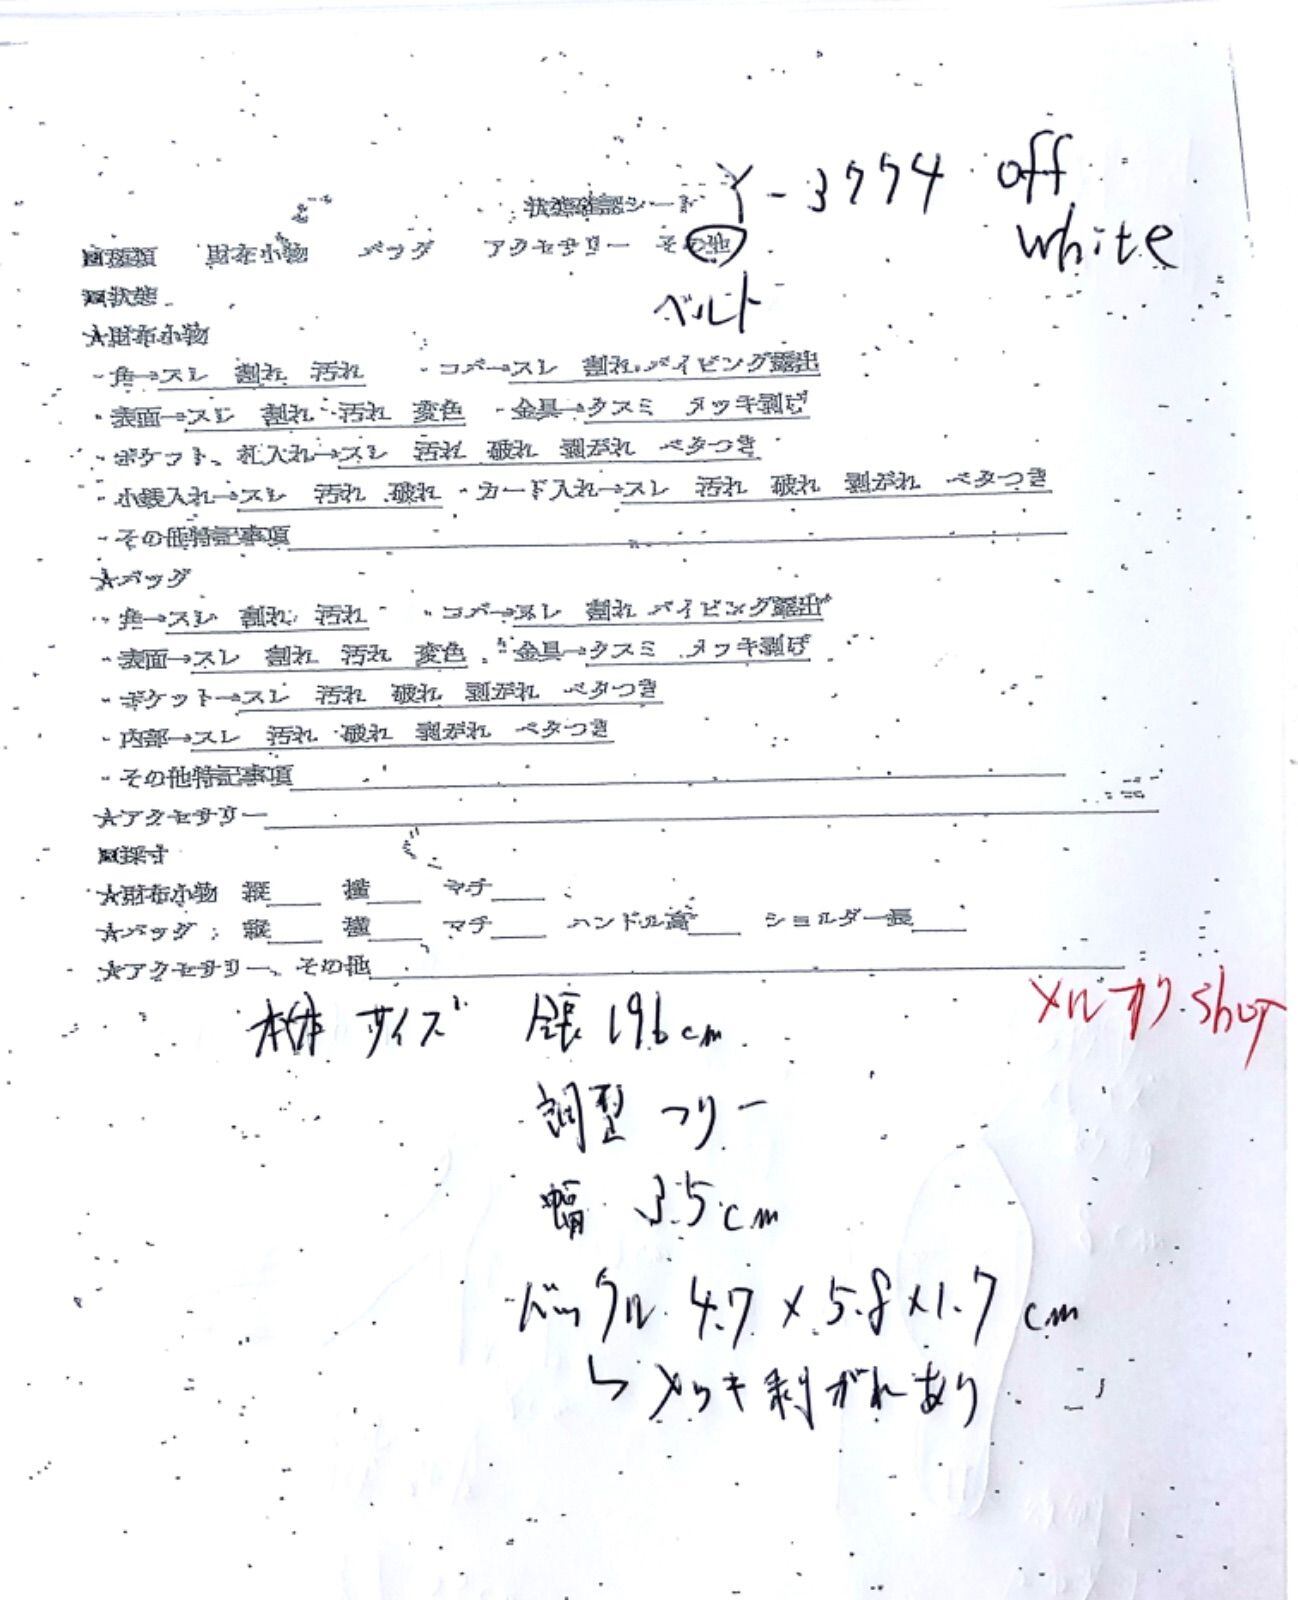 状態確認シート Y-3774 off white
■種類 財布小物 バッグ アクセサリー その他
ベルト
■状態
★財布小物
・角→スレ 割れ 汚れ ・コバ→スレ 割れ パイピング露出
・表面→スレ 割れ 汚れ 変色 ・金具→クスミ メッキ剥げ
・ポケット、札入れ→スレ 汚れ 破れ 剥がれ ベタつき
・小銭入れ→スレ 汚れ 破れ ・カード入れ→スレ 汚れ 破れ 剥がれ ベタつき
・その他特記事項
★バッグ
・角→スレ 割れ 汚れ ・コバ→スレ 割れ パイピング露出
・表面→スレ 割れ 汚れ 変色 ・金具→クスミ メッキ剥げ
・ポケット→スレ 汚れ 破れ 剥がれ ベタつき
・内部→スレ 汚れ 破れ 剥がれ ベタつき
・その他特記事項
★アクセサリー
■採寸
★財布小物 縦 横 マチ
★バッグ 縦 横 マチ ハンドル高 ショルダー長
★アクセサリー、その他
メル オク shop
本体サイズ 全長 196cm
調整 フリー
幅 3.5cm
バックル 4.7×5.8×1.7cm
↳メッキ剥がれあり